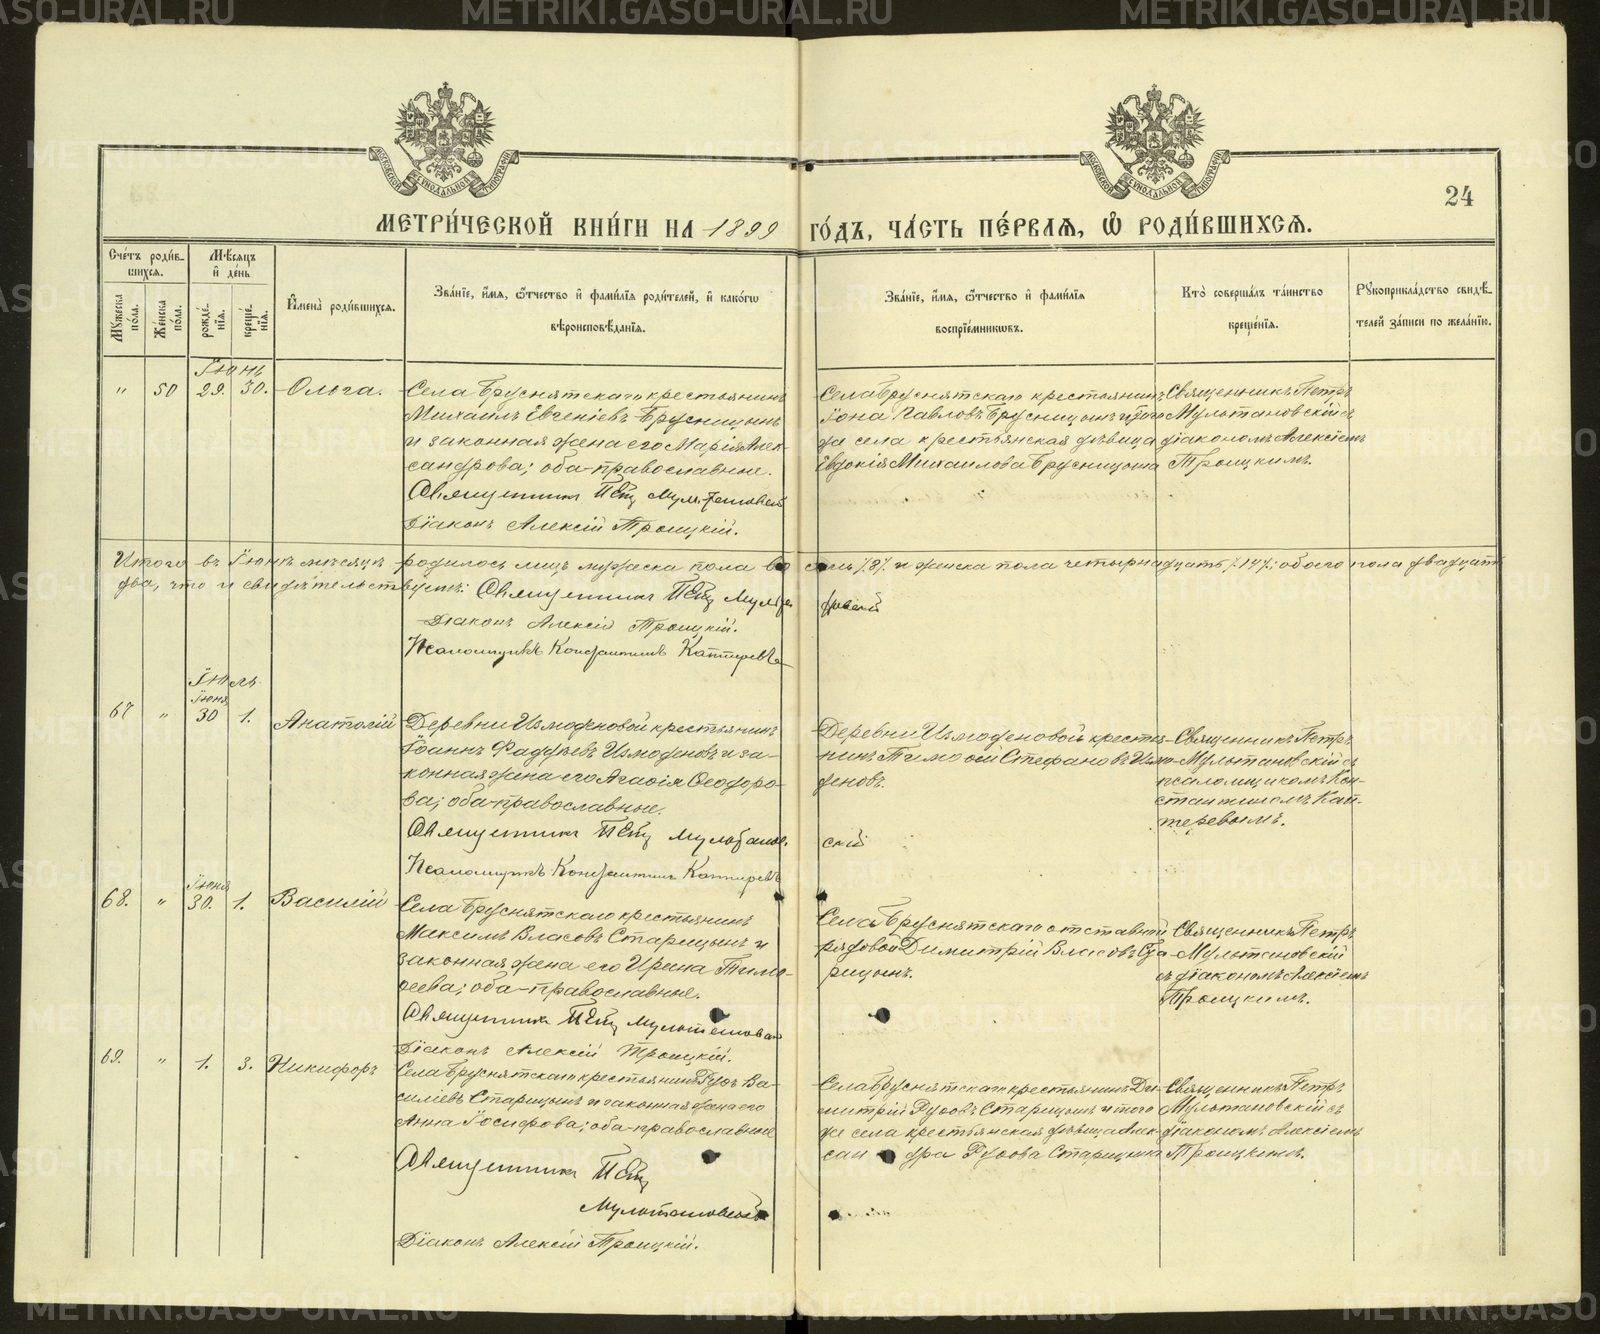 METRIKI.GASO-URAL.RU
МОСКОВСКОЙ СѴНОДАЛЬНОЙ ТИПОГРАФІИ
МОСКОВСКОЙ СѴНОДАЛЬНОЙ ТИПОГРАФІИ
24
МЕТРИ́ЧЕСКОЙ КНИ́ГИ НА 1899 ГО́ДЪ, ЧА́СТЬ ПЕ́РВАЯ, Ѡ РОДИ́ВШИХСЯ.
Сче́тъ роди́в-
шихся.
Му́жеска по́ла.
Же́нска по́ла.
Мѣ́сяцъ
и де́нь
рожде́-
нія.
креще́-
нія.
Имена̀ роди́вшихся.
Зва́ніе, и́мя, ѻ́тчество и фами́лія роди́телей, и како́гѡ
вѣроисповѣ́данія.
Зва́ніе, и́мя, ѻ́тчество и фами́лія
воспріе́мникѡвъ.
Кто̀ соверша́лъ та́инство
креще́нія.
Рукоприкла́дство свидѣ́-
телей за́писи по жела́нію.
Іюнь
" 50 29. 30. Ольга.
Села Бруснятскаго крестьянинъ
Михаилъ Евгеніевъ Брусницынъ
и законная жена его Марія Алек-
сандрова; оба православные.
Священникъ Петръ Мультановскій
Діаконъ Алексій Троицкій.
Села Бруснятскаго крестьянинъ
Іона Павловъ Брусницынъ и того
же села крестьянская дѣвица
Евдокія Михаилова Брусницына
Священникъ Петръ
Мультановскій съ
діакономъ Алексіемъ
Троицкимъ.
Итого въ Іюнѣ мѣсяцѣ родилось лицъ мужеска пола восемь /8/ и женска пола четырнадцать /14/; обоего пола двадцать
два, что и свидѣтельствуемъ: Священникъ Петръ Мультановскій
Діаконъ Алексій Троицкій.
Псаломщикъ Константинъ Каптеревъ
Іюль
67 " Іюня 30 1. Анатолій
Деревни Измоденовой крестьянинъ
Іоаннъ Фаддѣевъ Измоденовъ и за-
конная жена его Агаѳія Ѳеодоро-
ва; оба православные.
Священникъ Петръ Мультановскій
Псаломщикъ Константинъ Каптеревъ
Деревни Измоденовой крестья-
нинъ Тимоѳей Стефановъ Измо-
деновъ.
Священникъ Петръ
Мультановскій съ
псаломщикомъ Кон-
стантиномъ Кап-
теревымъ.
68. " Іюня 30. 1. Василій
Села Бруснятскаго крестьянинъ
Максимъ Власовъ Старицынъ и
законная жена его Ирина Тимо-
ѳеева; оба православные.
Священникъ Петръ Мультановскій
Діаконъ Алексій Троицкій.
Села Бруснятскаго отставной
рядовой Димитрій Власовъ Ста-
рицынъ.
Священникъ Петръ
Мультановскій
съ діакономъ Алексіемъ
Троицкимъ.
69. " 1. 3. Никифоръ
Села Бруснятскаго крестьянинъ Руфъ Ва-
силіевъ Старицынъ и законная жена его
Анна Іосифова; оба православные
Священникъ Петръ
Мультановскій
Діаконъ Алексій Троицкій.
Села Бруснятскаго крестьянинъ Ди-
митрій Руфовъ Старицынъ и того
же села крестьянская дѣвица Алек-
сандра Руфова Старицына
Священникъ Петръ
Мультановскій съ
діакономъ Алексіемъ
Троицкимъ.